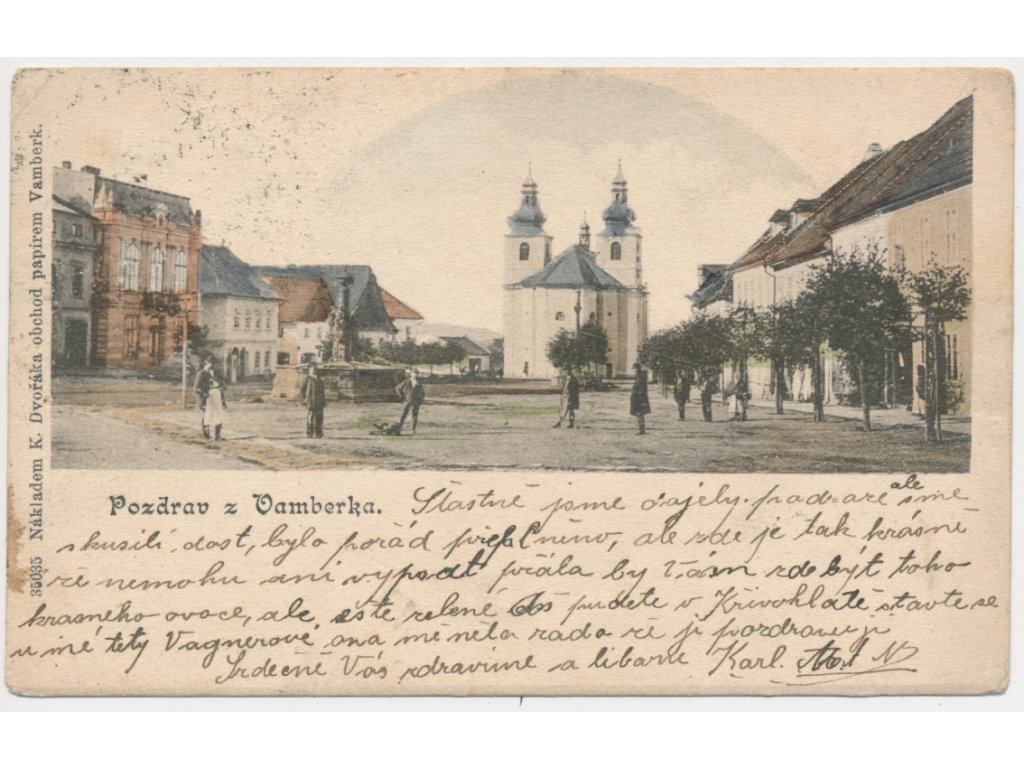 35035 Nákladem K. Dvořáka obchod papírem Vamberk.
Pozdrav z Vamberka.
Štastně jsme dojely. padvare ale sme
skusili dost, bylo pořád přeplněno, ale zde je tak krásně
že nemohu ani vypsat přála by Vám zde být toho
krasného ovoce, ale este zelené až pudete v Křivoklatě stavte se
u mé tety Vagnerové, ona mě měla rada že ji pozdravuji
Srdečně Vás zdravime a libame Karl.